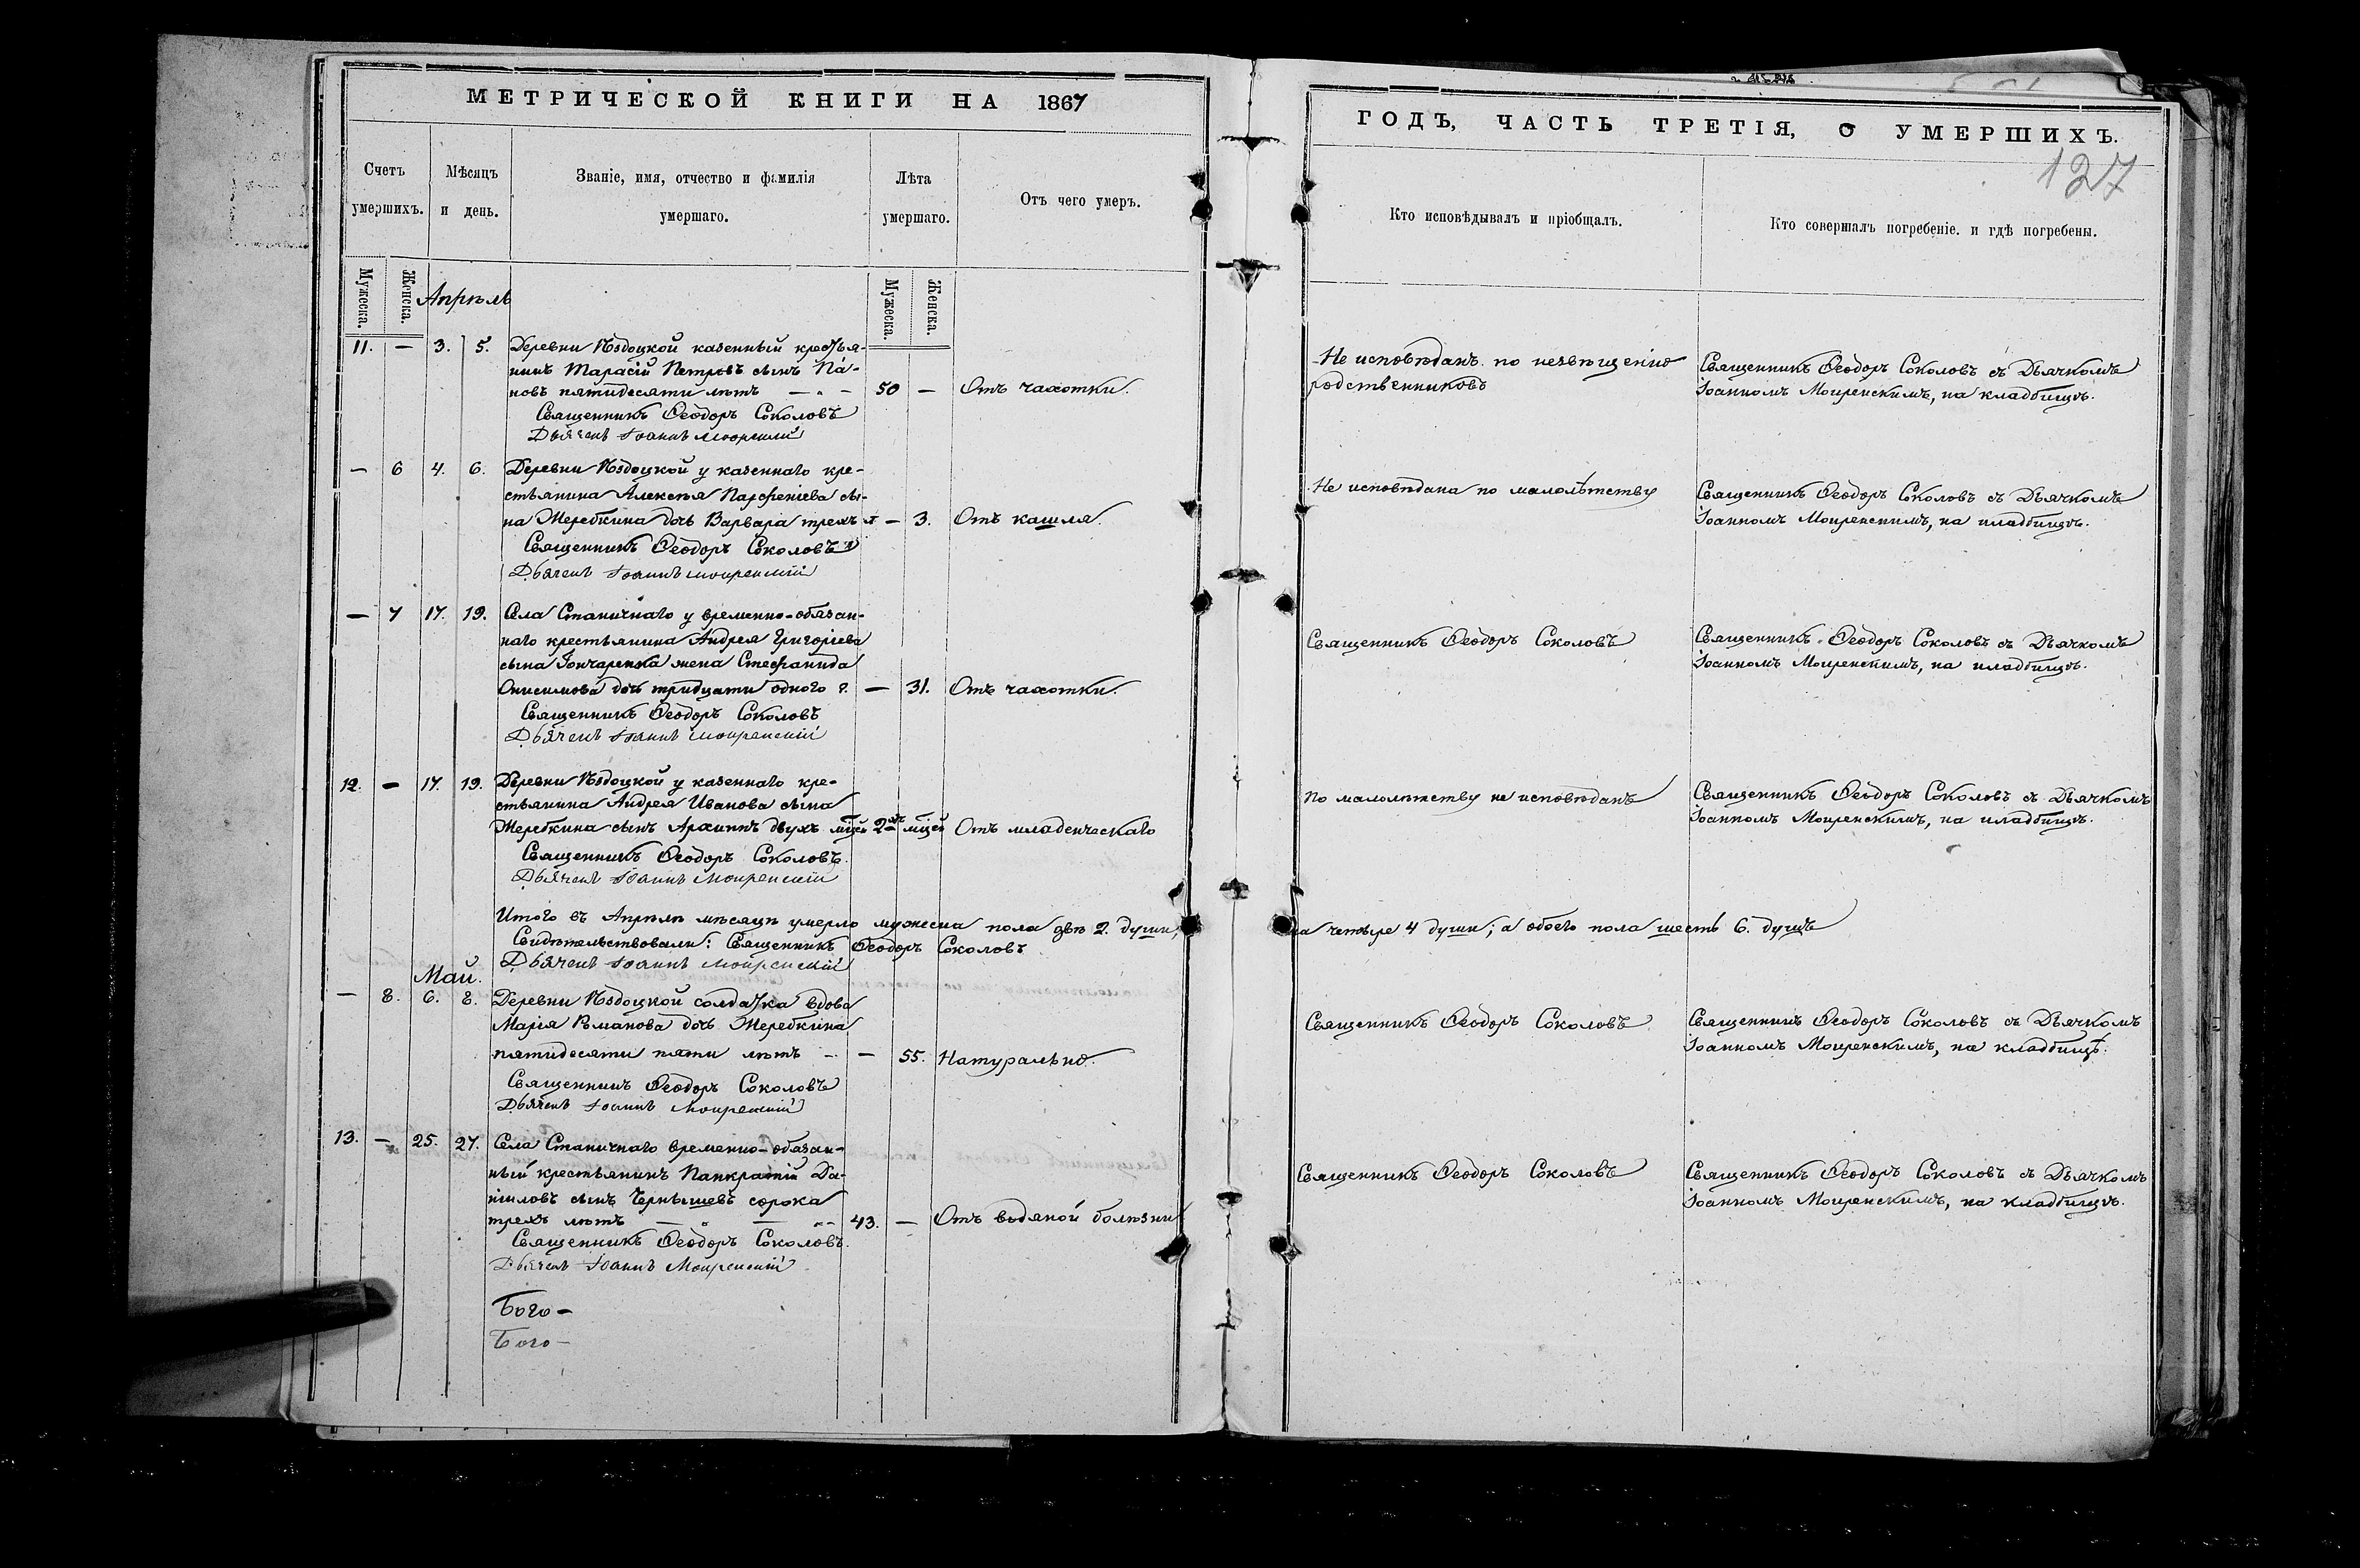 МЕТРИЧЕСКОЙ КНИГИ НА 1867
Счетъ умершихъ.
Мѣсяцъ и день.
Званіе, имя, отчество и фамилія умершаго.
Лѣта умершаго.
Отъ чего умеръ.
Мужеска.
Женска.
Апрѣль
Мужеска.
Женска.
11. — 3. 5. Деревни казенный крестья-
нинъ Тарасій Петровъ сынъ Па-
новъ пятидесяти лѣтъ — 50 — Отъ чахотки.
Священникъ Ѳеодоръ Соколовъ
Дьячекъ Іоаннъ
— 6 4. 6. Деревни у казеннаго кре-
стьянина Алексѣя Парѳеніева сы-
на Жеребкина дочь Варвара трехъ л — 3. Отъ кашля.
Священникъ Ѳеодоръ Соколовъ
Дьячекъ Іоаннъ
— 7 17. 19. Села Станичнаго у временно-обязан-
наго крестьянина Андрея Григоріева
сына Гончаренка жена Стефанида
Онисимова дочь тридцати одного г. — 31. Отъ чахотки.
Священникъ Ѳеодоръ Соколовъ
Дьячекъ Іоаннъ
12. — 17. 19. Деревни у казеннаго кре-
стьянина Андрея Иванова сына
Жеребкина сынъ Архипъ двухъ мцей 2хъ мцей Отъ младенческаго
Священникъ Ѳеодоръ Соколовъ.
Дьячекъ Іоаннъ
Итого въ Апрѣлѣ мѣсяцѣ умерло мужеска пола двѣ 2. души,
Свидѣтельствовали: Священникъ Ѳеодоръ Соколовъ
Дьячекъ Іоаннъ
Май.
— 8. 6. 8. Деревни солдатка вдова
Марія Романова дочь Жеребкина
пятидесяти пяти лѣтъ — — 55. Натурально.
Священникъ Ѳеодоръ Соколовъ
Дьячекъ Іоаннъ
13. — 25. 27. Села Станичнаго временно-обязан-
ный крестьянинъ Панкратій Да-
ніиловъ сынъ Чернышевъ сорока
трехъ лѣтъ — 43. — Отъ водяной болѣзни
Священникъ Ѳеодоръ Соколовъ.
Дьячекъ Іоаннъ
Бого-
Бого-
ГОДЪ, ЧАСТЬ ТРЕТІЯ, О УМЕРШИХЪ.
127
Кто исповѣдывалъ и пріобщалъ.
Кто совершалъ погребеніе. и гдѣ погребены.
Не исповѣданъ по неизвѣщенію
родственниковъ
Священникъ Ѳеодоръ Соколовъ съ Дьячкомъ
Іоанномъ на кладбищѣ.
Не исповѣдана по малолѣтству
Священникъ Ѳеодоръ Соколовъ съ Дьячкомъ
Іоанномъ на кладбищѣ.
Священникъ Ѳеодоръ Соколовъ
Священникъ Ѳеодоръ Соколовъ съ Дьячкомъ
Іоанномъ на кладбищѣ.
По малолѣтству не исповѣданъ
Священникъ Ѳеодоръ Соколовъ съ Дьячкомъ
Іоанномъ на кладбищѣ.
на четыре 4 души; а обоего пола шесть 6. душъ
Священникъ Ѳеодоръ Соколовъ
Священникъ Ѳеодоръ Соколовъ съ Дьячкомъ
Іоанномъ на кладбищѣ.
Священникъ Ѳеодоръ Соколовъ
Священникъ Ѳеодоръ Соколовъ съ Дьячкомъ
Іоанномъ на кладбищѣ.